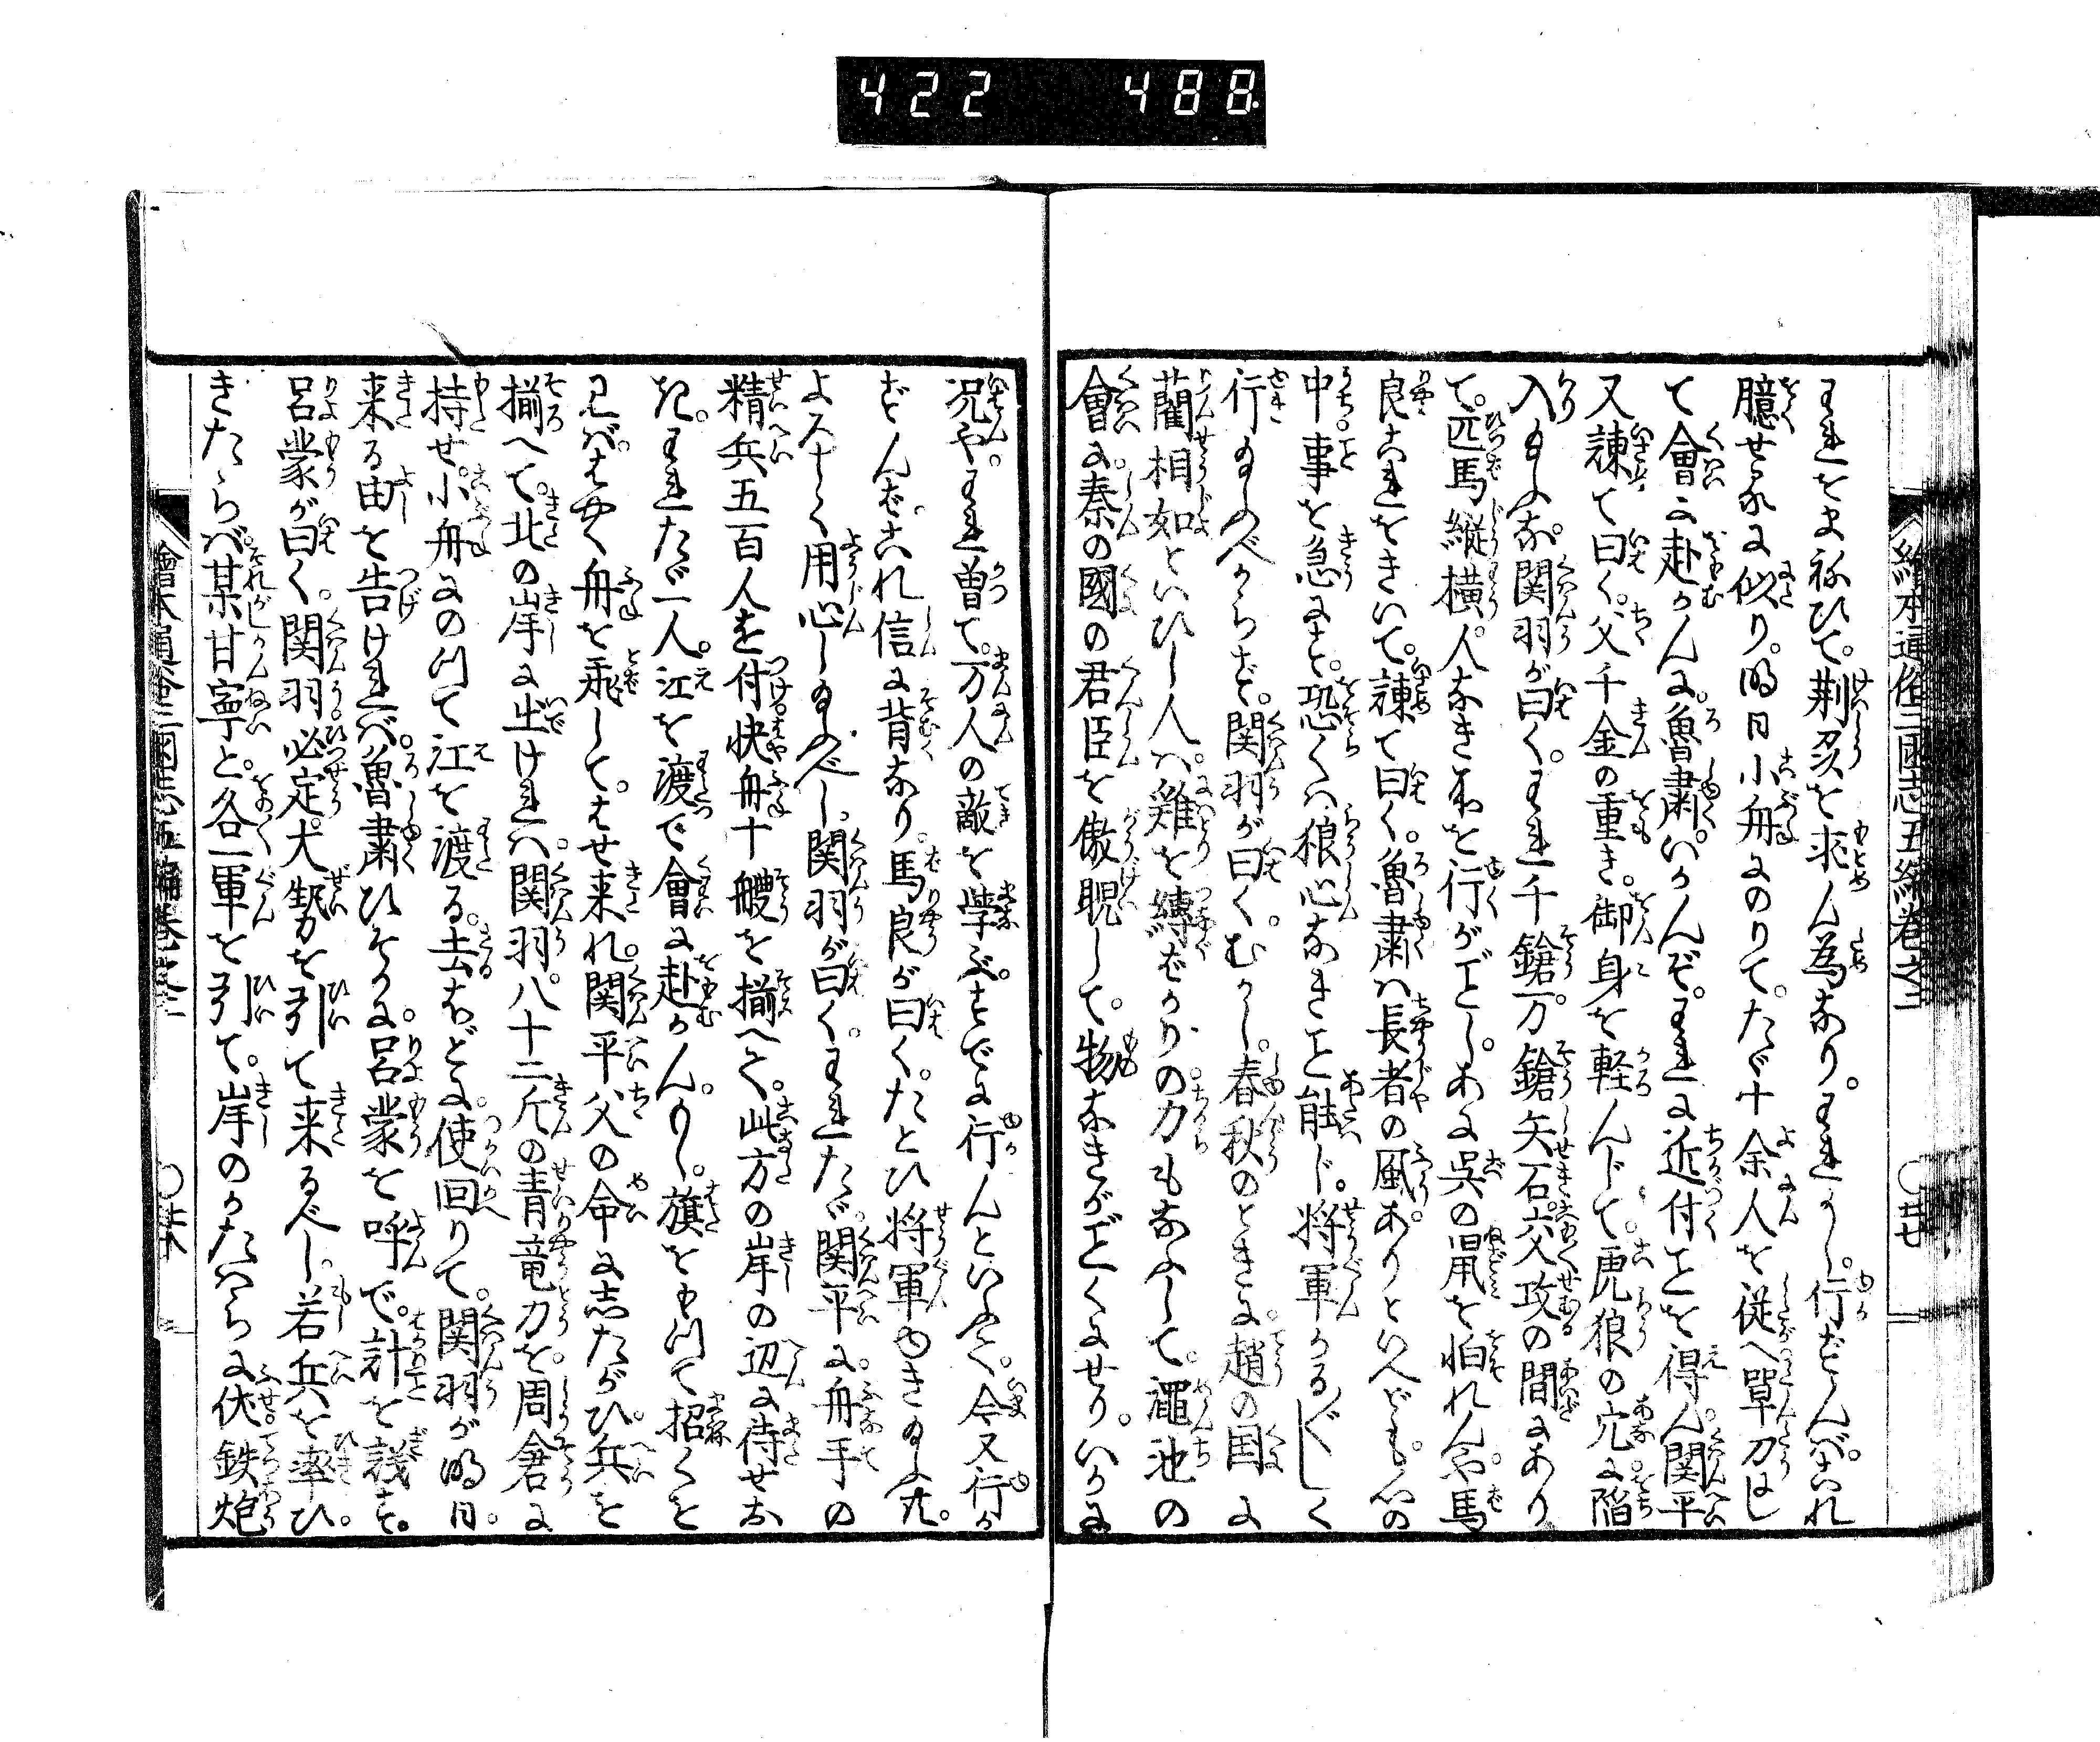 422 488
繪本通俗三國志五編巻之二
われをまねひて。荊州を求ん為なり。われもし。行ずんばこれ
臆せるに似り。明日小舟にのりて。たゞ十余人を従へ単刀にし
て會に赴かんに。魯粛。いかんぞ。われに近付ことを得ん。関平
又諌て曰く。父千金の重き。御身を軽んじて。虎狼の穴に陥
入たまふな。関羽が曰く。われ千鎗万鎗矢石交攻の間にあり
て。匹馬縦横人なき所を行がごとし。あに呉の鼠を怕れんや。馬
良これをきいて。諌て曰く。魯粛は長者の風ありといへども。心の
中事を急にす。恐くは狼心なきこと能じ。将軍かる〴〵しく
行たまふべからず。関羽が曰く。むかし。春秋のときに。趙の国に
藺相如といひし人は。雞を縛ばかりの力もなふして。澠池の
會に。秦の國の君臣を傲睨して。物なきがごとくにせり。いかに
況や。われ曽て。万人の敵を学ぶ。すでに行んといふて。今又行か
ずんば。これ信に背なり。馬良が曰く。たとひ将軍ゆきたまふ共。
よろしく用心したまふべし。関羽が曰く。われたゞ。関平に。舟手の
精兵五百人を付。快舟十艘を揃へて。此方の岸の辺に待せお
き。われたゞ一人。江を渡て會に赴かん。もし。旗をもつて招くを
見ば。はやく舟を飛して。はせ来れ。関平父の命にしたがひ。兵を
揃へて。北の岸に出ければ。関羽。八十二斤の青竜刀を。周倉に
持せ。小舟にのつて江を渡る。去ほどに。使回りて。関羽が明日。
来る由を告ければ。魯粛ひそかに。呂蒙を呼で。計を議す。
呂蒙が曰く。関羽必定。大勢を引て来るべし。若兵を率ひ。
きたらば。某甘寧と。各一軍を引て。岸のかたはらに伏。鉄炮